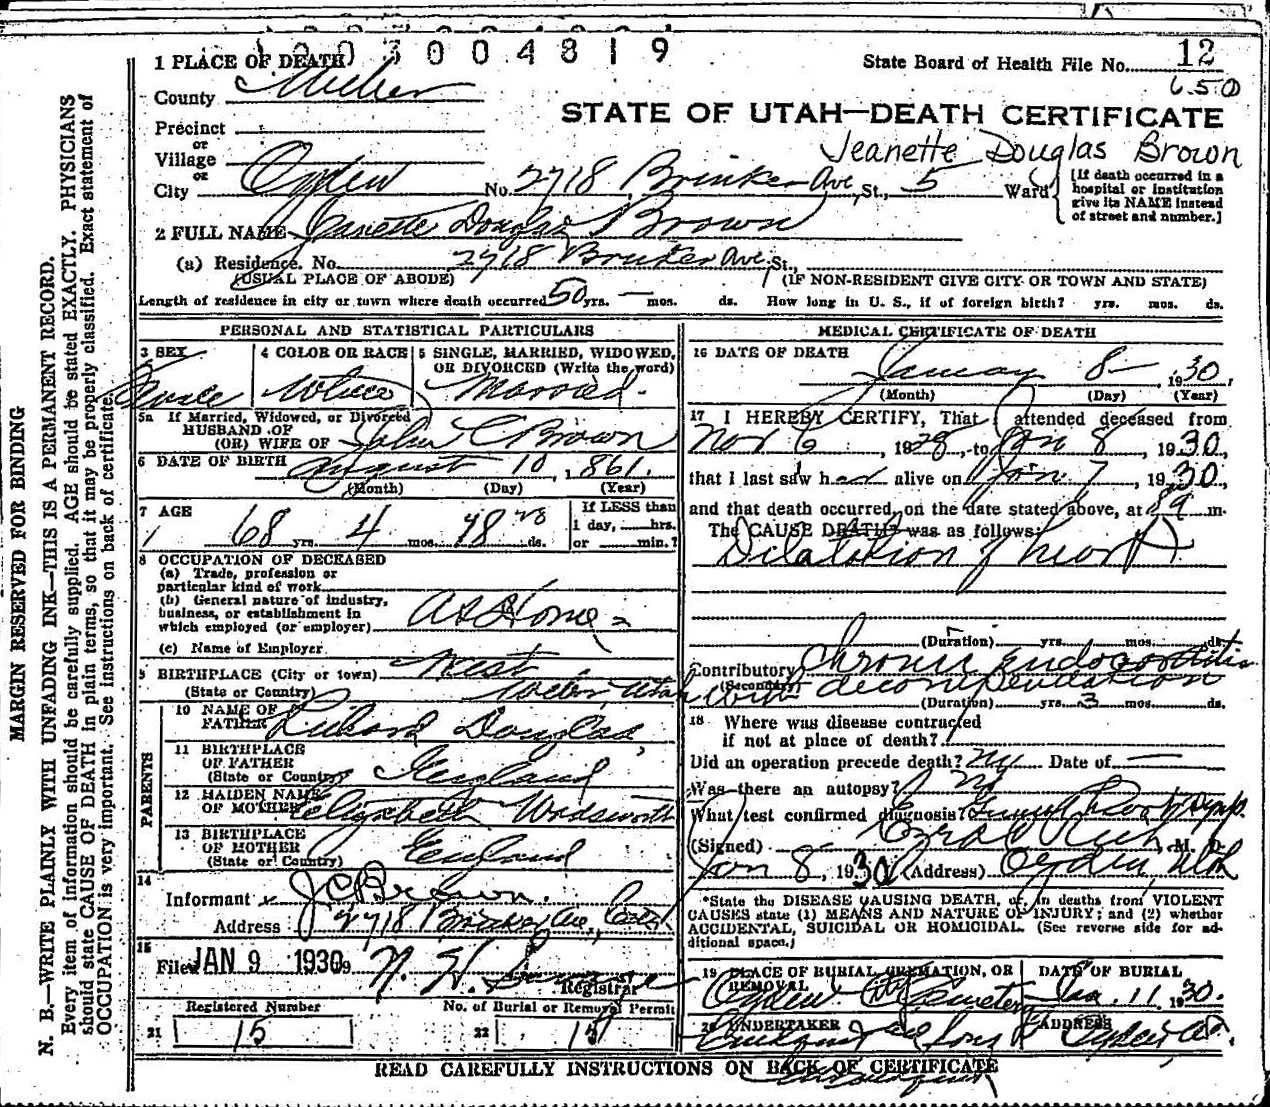 1003004819
1 PLACE OF DEATH
State Board of Health File No. 12
650
County
STATE OF UTAH—DEATH CERTIFICATE
Precinct
or
Village
or
Jeanette Douglas Brown
City Ogden No. 2718 Brinker Ave, St., 5 Ward
[If death occurred in a
hospital or institution
give its NAME instead
of street and number.]
2 FULL NAME Janette Douglas Brown
(a) Residence. No. 2718 Brinker Ave. St.,
(USUAL PLACE OF ABODE) (IF NON-RESIDENT GIVE CITY OR TOWN AND STATE)
Length of residence in city or town where death occurred 50 yrs. — mos. ds. How long in U. S., if of foreign birth? yrs. mos. ds.
PERSONAL AND STATISTICAL PARTICULARS
3 SEX
Female
4 COLOR OR RACE
White
5 SINGLE, MARRIED, WIDOWED,
OR DIVORCED (Write the word)
Married.
5a If Married, Widowed, or Divorced
HUSBAND OF
(OR) WIFE OF John C Brown
6 DATE OF BIRTH August 10, 1861.
(Month) (Day) (Year)
7 AGE
68 yrs. 4 mos. 28 ds.
If LESS than
1 day, hrs.
or min.?
8 OCCUPATION OF DECEASED
(a) Trade, profession or
particular kind of work
(b) General nature of industry,
business, or establishment in
which employed (or employer) At Home
(c) Name of Employer
9 BIRTHPLACE (City or town) West
(State or Country) Weber Utah
PARENTS
10 NAME OF
FATHER Richard Douglas
11 BIRTHPLACE
OF FATHER
(State or Country) England
12 MAIDEN NAME
OF MOTHER Elizabeth Wadsworth
13 BIRTHPLACE
OF MOTHER
(State or Country) England
14
Informant J C Brown.
Address 2718 Brinker Ave,
15
Filed JAN 9 1930 N. H.
Registrar
Registered Number
21 15
No. of Burial or Removal Permit
22 15
MEDICAL CERTIFICATE OF DEATH
16 DATE OF DEATH
January 8 — , 1930,
(Month) (Day) (Year)
17 I HEREBY CERTIFY, That I attended deceased from
Nov 6, 1928, to Jan 8, 1930,
that I last saw her alive on Jan 7, 1930,
and that death occurred, on the date stated above, at 8 a m.
The CAUSE DEATH* was as follows:
Dilatation of heart
(Duration) yrs. mos. ds.
Contributory Chronic endocarditis
(Secondary) with decompensation
(Duration) yrs. 3 mos. ds.
18 Where was disease contracted
if not at place of death?
Did an operation precede death? No Date of —
Was there an autopsy? No
What test confirmed diagnosis?
(Signed) Ezra C Rich, M. D.
Jan 8, 1930 (Address) Ogden, Utah
*State the DISEASE CAUSING DEATH, or, in deaths from VIOLENT
CAUSES state (1) MEANS AND NATURE OF INJURY; and (2) whether
ACCIDENTAL, SUICIDAL OR HOMICIDAL. (See reverse side for ad-
ditional space.)
19 PLACE OF BURIAL, CREMATION, OR
REMOVAL
Ogden City Cemetery
DATE OF BURIAL
Jan. 11, 1930.
20 UNDERTAKER
Lindquist and Sons
ADDRESS
Ogden
READ CAREFULLY INSTRUCTIONS ON BACK OF CERTIFICATE
MARGIN RESERVED FOR BINDING
N. B.—WRITE PLAINLY WITH UNFADING INK—THIS IS A PERMANENT RECORD.
Every item of information should be carefully supplied. AGE should be stated EXACTLY. PHYSICIANS
should state CAUSE OF DEATH in plain terms, so that it may be properly classified. Exact statement of
OCCUPATION is very important. See instructions on back of certificate.